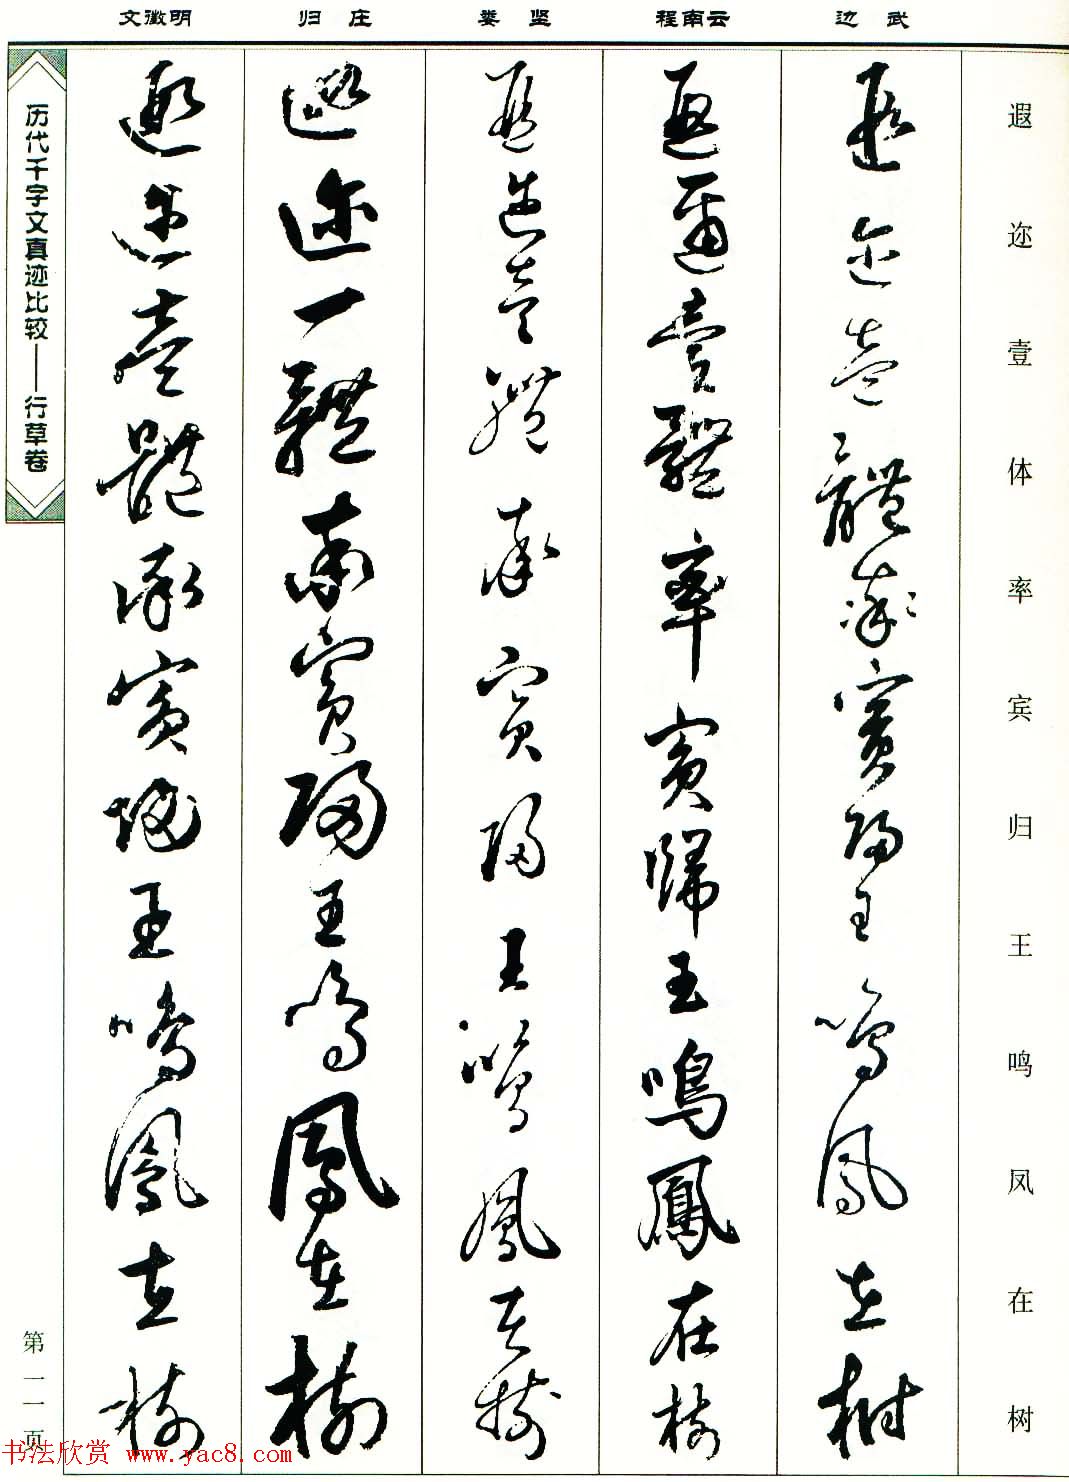 文徵明 归庄 娄坚 程南云 边武
遐迩壹体率宾归王鸣凤在树
遐迩壹體率賓歸王鳴鳳在樹
遐邇壹體率賓歸王鳴鳳在樹
遐迩壹體率賓歸王鳴鳳在樹
遐迩一體率賓歸王鳴鳳在樹
遐迩壹體率賓歸王鳴鳳在樹
历代千字文真迹比较——行草卷
第一一页
书法欣赏 www.yac8.com